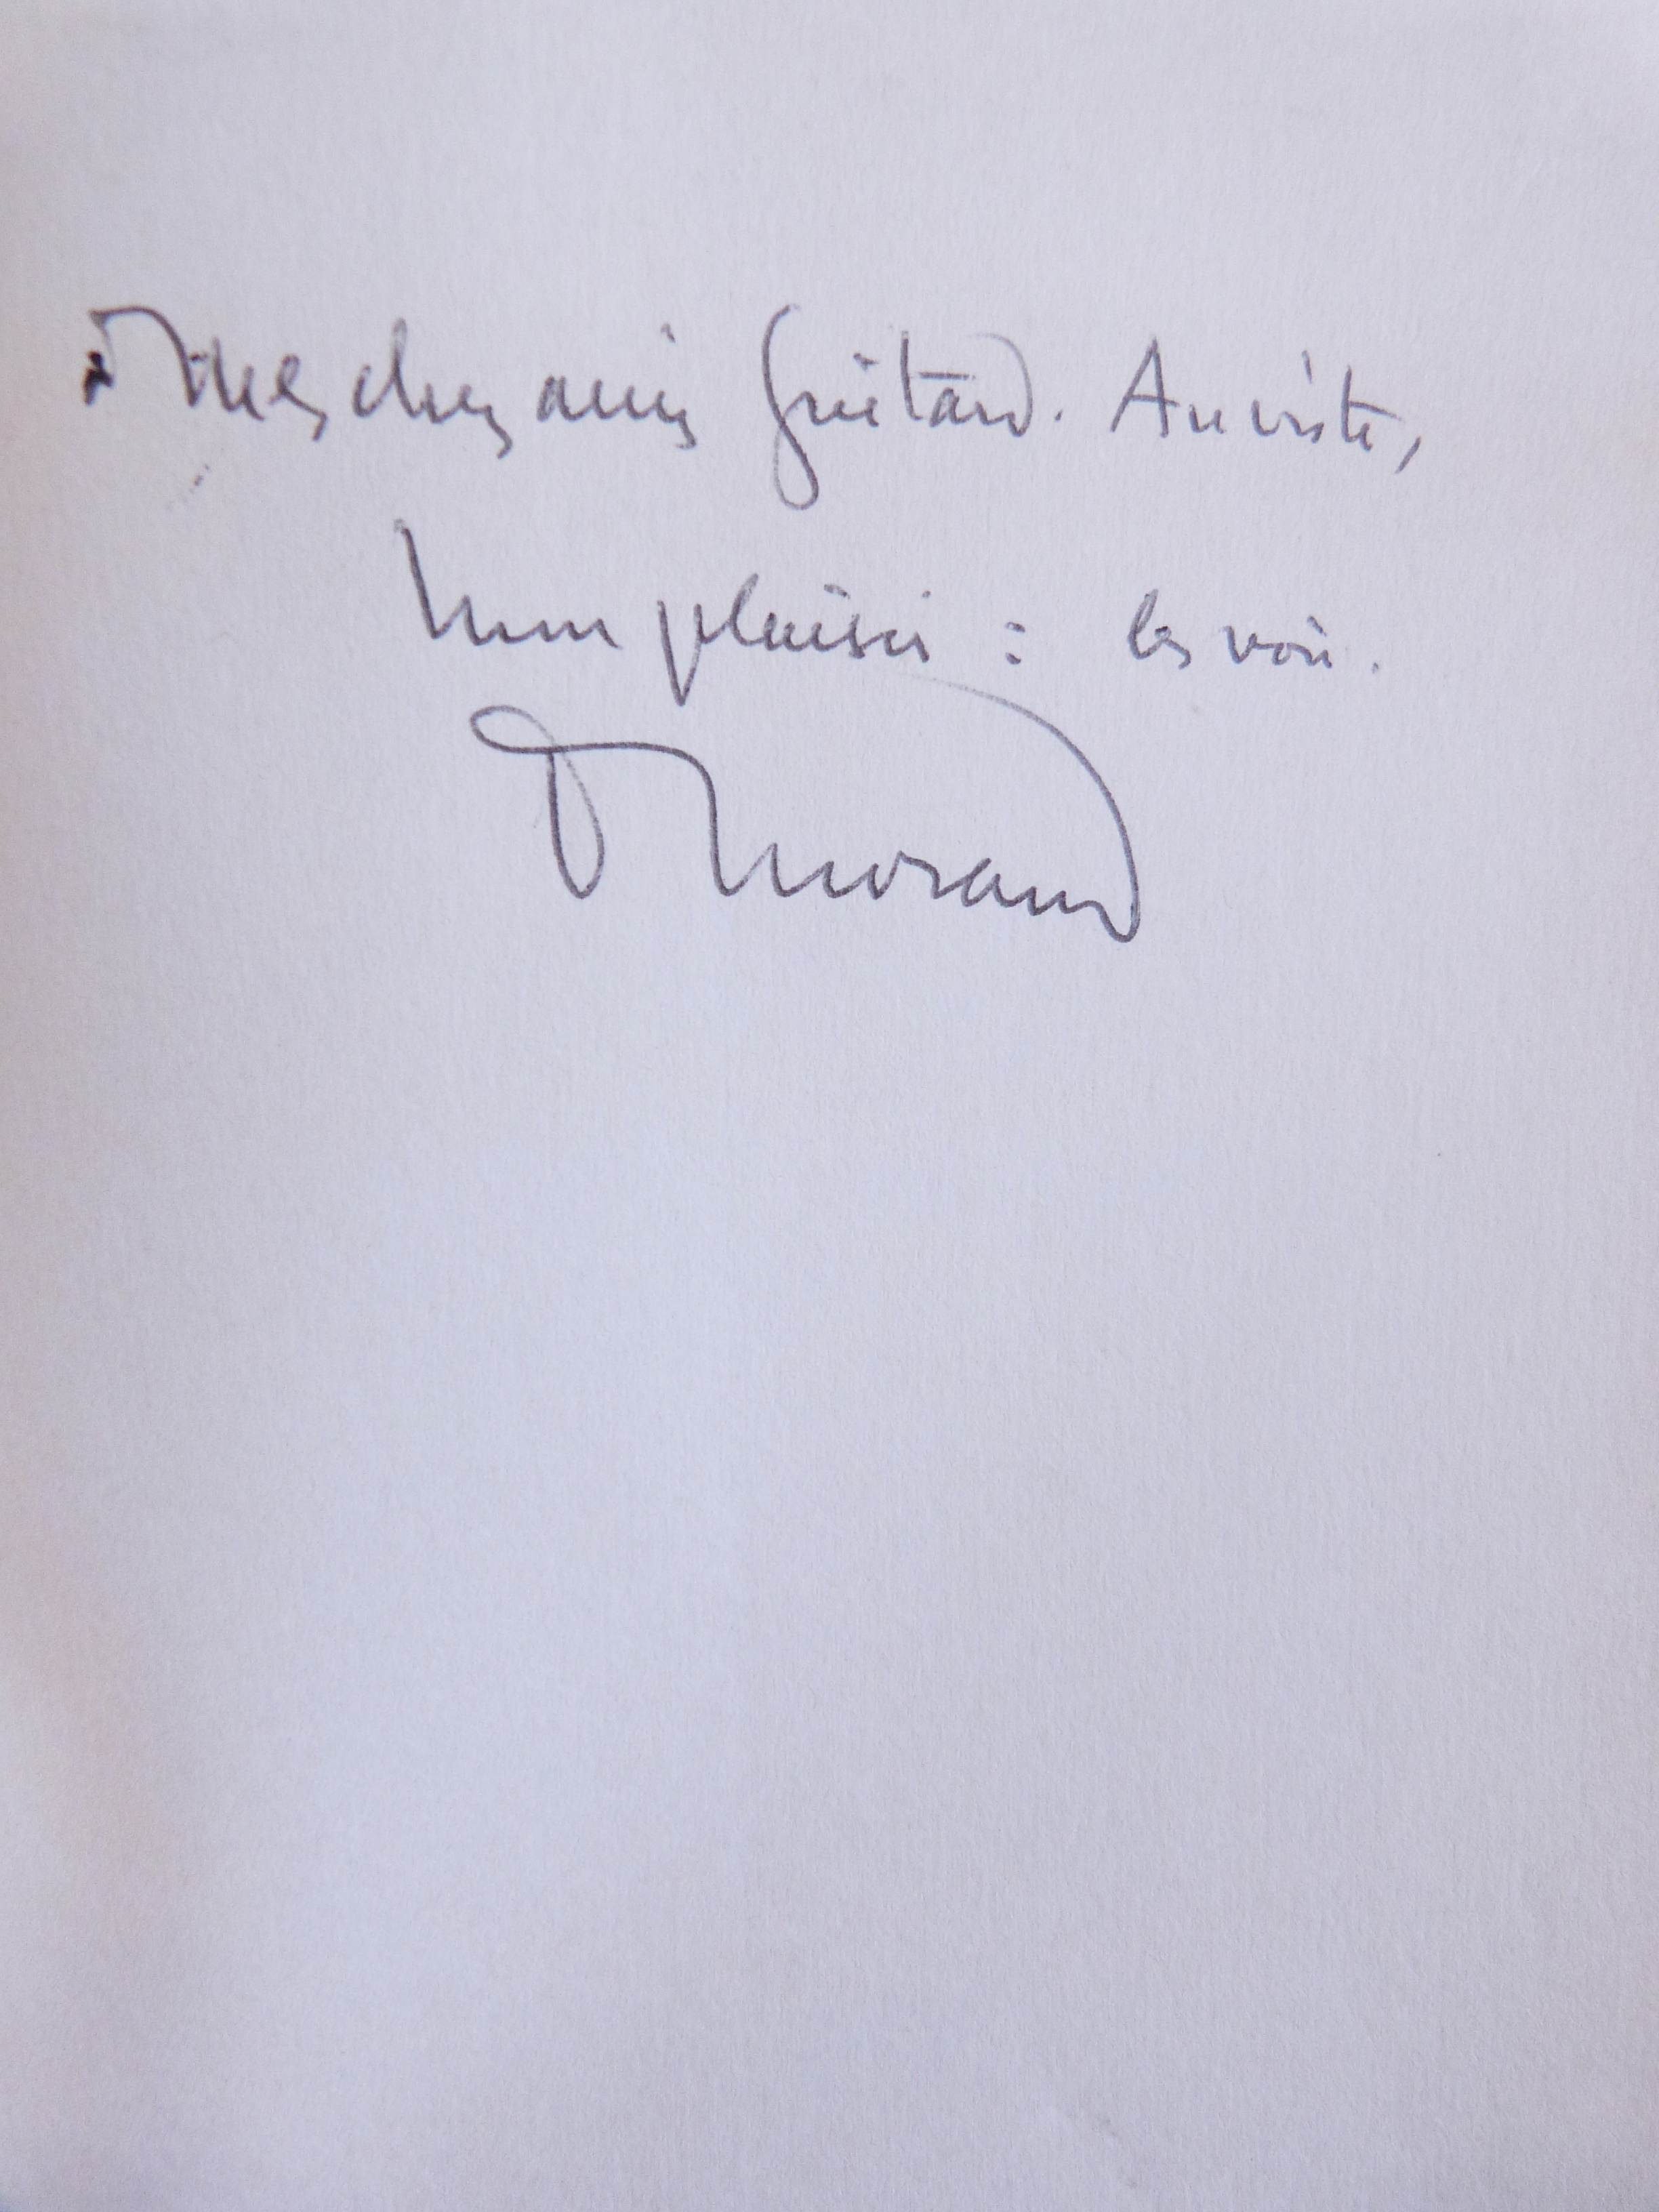 à mes chers amis Guitard. Au reste,
mon plaisir : les voir.
P Morand